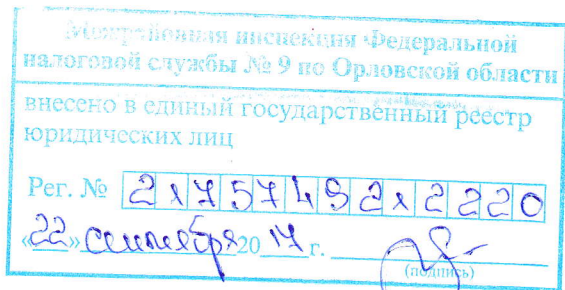 Межрайонная инспекция Федеральной
налоговой службы № 9 по Орловской области
внесено в единый государственный реестр
юридических лиц
Рег. № 2175749212220
«22» сентября 2017 г.
(подпись)